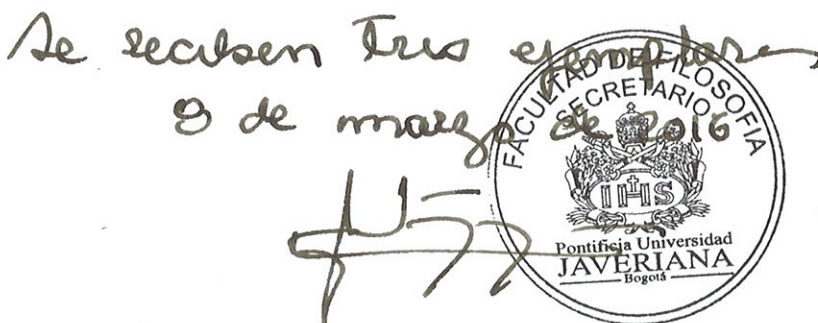 Se reciben Tres ejemplares
9 de marzo de 2016
FACULTAD DE FILOSOFIA
SECRETARIO
IHS
Pontificia Universidad
JAVERIANA
Bogotá